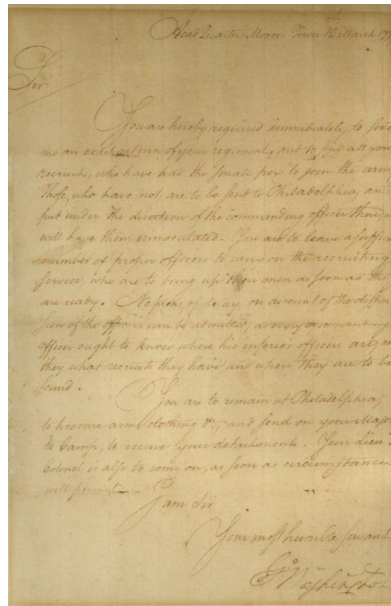 Head Quarters Morris Town 12 March 177
Sir
You are hereby required immediately, to send
me an exact return of your regiment, and to send all your
recruits, who have had the small pox to join the army
Those, who have not are to be sent to Philadelphia, and
put under the direction of the commanding officer there, who
will have them innoculated. You are to leave a suffi
number of proper officers to carry on the recruiting
service, who are to bring up their men as soon as they
are ready. No plea, of delay, on account of the disper
sion of the officers can be admitted, as every commanding
officer ought to know where his inferior officers are, and
they what recruits they have and where they are to be
found.
You are to remain at Philadelphia,
to procure arms, clothing &c, and send on your Major
to Camp, to receive your detachments. Your Lieu
Colonel is also to come on, as soon as circumstances
will permit
I am Sir
Your most humble Servant
Go Washington